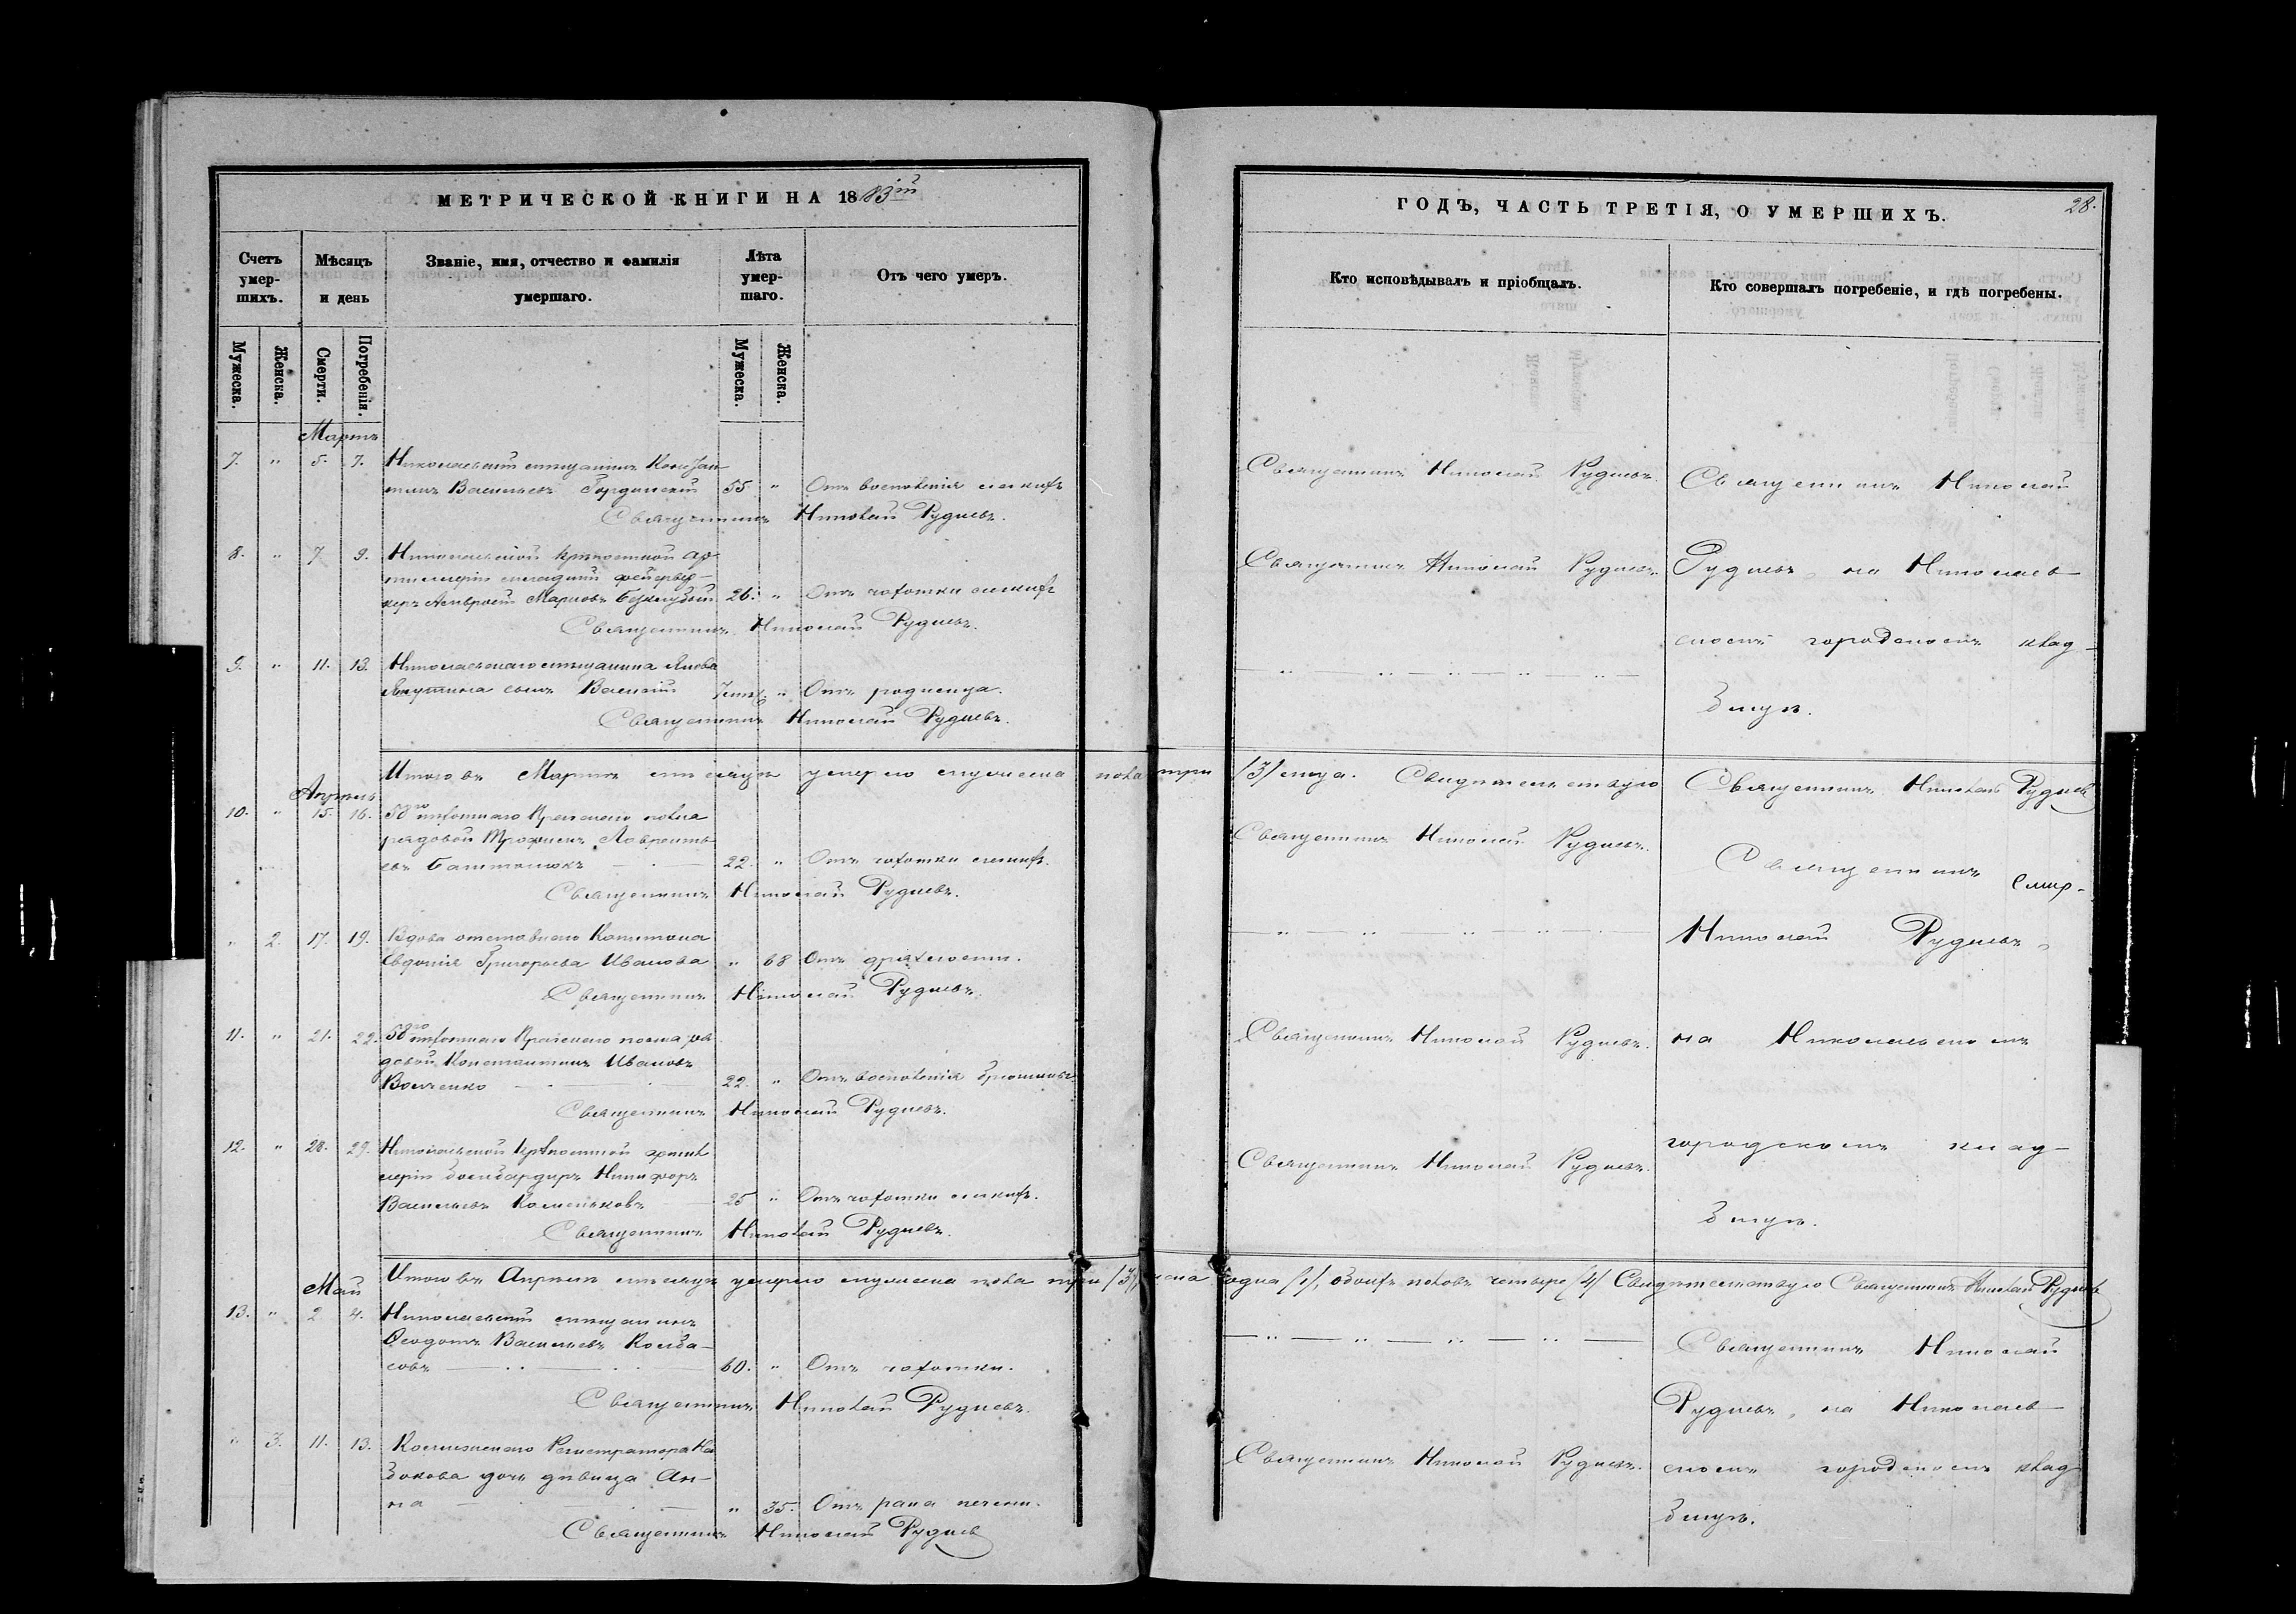 МЕТРИЧЕСКОЙ КНИГИ НА 1883ій
Счетъ умер-шихъ.
Мѣсяцъ и день
Званіе, имя, отчество и фамилія умершаго.
Лѣта умер-шаго.
Отъ чего умеръ.
Мужеска.
Женска.
Смерти.
Погребенія.
Мужеска.
Женска.
Мартъ
7. " 5. 7. Николаевскій мѣщанинъ Констан-
тинъ Васильевъ 55 " Отъ воспаленія легкихъ
Священникъ Николай Рудневъ.
8. " 7 9. Николаевской крѣпостной ар-
тиллеріи младшій фейервер-
керъ Амвросій Марковъ 26. " Отъ чахотки легкихъ
Священникъ Николай Рудневъ.
9. " 11. 13. Николаевскаго мѣщанина Якова
сынъ Василій 7 " Отъ родимца.
Священникъ Николай Рудневъ.
Итого въ Мартѣ мѣсяцѣ умерло мужеска пола три
Апрѣль
10. " 15. 16. 58го пѣхотнаго Прагскаго полка
рядовой Трофимъ Лаврентъ-
евъ 22. " Отъ чахотки легкихъ.
Священникъ Николай Рудневъ.
" 2. 17. 19. Вдова отставнаго Капитана
Евдокія Григорьева Иванова " 68 Отъ дряхлости.
Священникъ Николай Рудневъ.
11. " 21. 22. 58го пѣхотнаго Прагскаго полка ря-
довой Константинъ Ивановъ
Волченко 22. " Отъ воспаленія брюшины
Священникъ Николай Рудневъ.
12. " 28. 29. Николаевской крѣпостной артил-
леріи бомбардиръ Никифоръ
Васильевъ 25 " Отъ чахотки легкихъ.
Священникъ Николай Рудневъ.
Итого въ Апрѣлѣ мѣсяцѣ умерло мужеска пола три /3/,
Май
13. " 2 4. Николаевскій мѣщанинъ
Ѳеодотъ Васильевъ Колба-
совъ 60. " Отъ чахотки.
Священникъ Николай Рудневъ.
" 3. 11. 13. Коллежскаго Регистратора Ка-
закова дочь дѣвица Ан-
на " 35. Отъ рака печени.
Священникъ Николай Рудневъ
ГОДЪ, ЧАСТЬ ТРЕТІЯ, О УМЕРШИХЪ.
28.
Кто исповѣдывалъ и пріобщалъ.
Кто совершалъ погребеніе, и гдѣ погребены.
Священникъ Николай Рудневъ.
Священникъ Николай
Священникъ Николай Рудневъ.
Рудневъ, на Николаев-
скомъ городскомъ клад-
бищѣ.
/3/ лица. Свидѣтельствую Священникъ Николай Рудневъ
Священникъ Николай Рудневъ.
Священникъ
Николай Рудневъ,
Священникъ Николай Рудневъ.
на Николаевскомъ
городскомъ клад-
Священникъ Николай Рудневъ.
бищѣ.
одна /1/, обоихъ половъ четыре /4/ Свидѣтельствую Священникъ Николай Рудневъ
Священникъ Николай
Рудневъ, на Николаев-
Священникъ Николай Рудневъ.
скомъ городскомъ клад-
бищѣ.